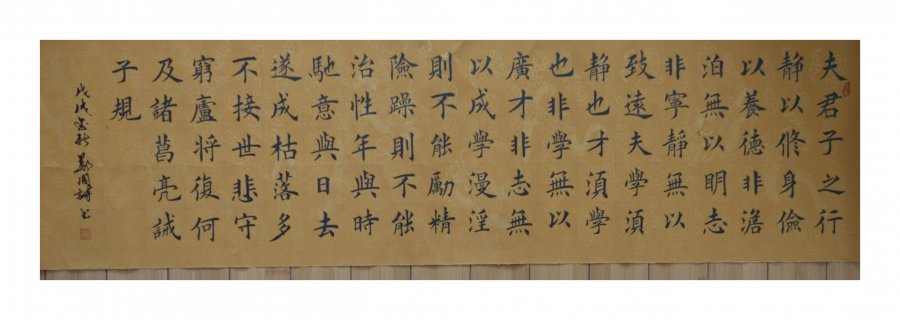 夫君子之行
静以修身儉
以養德非澹
泊無以明志
非寧靜無以
致遠夫學須
静也才須學
也非學無以
廣才非志無
以成學漫淫
則不能勵精
險躁則不能
治性年與時
馳意與日去
遂成枯落多
不接世悲守
窮廬將復何
及諸葛亮誡
子規
戊戌